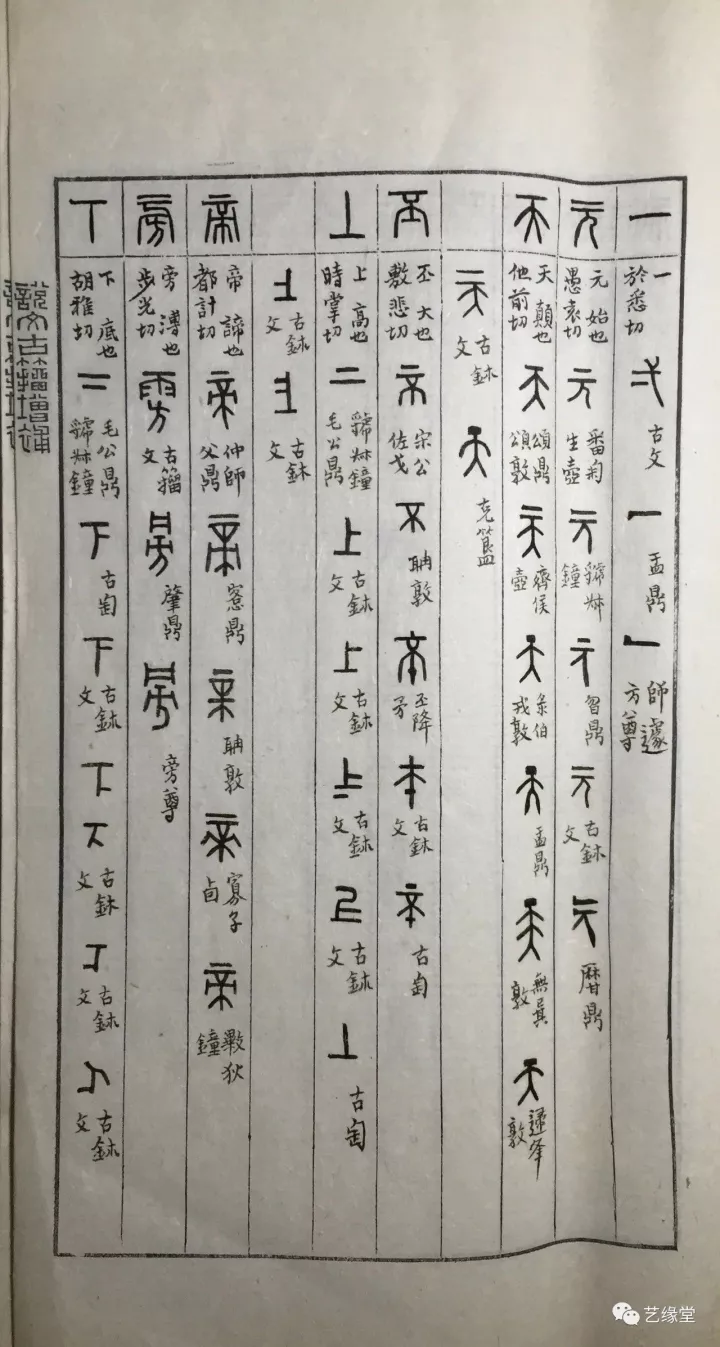 一 一 於悉切 弌 古文 一 盂鼎 一 師遽方尊
元 元 始也 愚袁切 元 番匊生壺 元 虢叔鐘 元 曶鼎 元 古鉥文 元 曆鼎
天 天 顛也 他前切 天 頌鼎 頌敦 天 齊侯壺 天 彔伯戎敦 天 盂鼎 天 無㠱敦 天 敦
天 古鉥文 天 克簋
丕 丕 大也 敷悲切 宗公佐戈 不 敦 丕降矛 古鉥文 古匋
丄 上 高也 時掌切 二 虢叔鐘 毛公鼎 上 古鉥文 上 古鉥文 古鉥文 古鉥文 丄 古匋
古鉥文 古鉥文
帝 帝 諦也 都計切 帝 仲師父鼎 帝 鼎 帝 敦 帝 寡子卣 帝 狄鐘
旁 旁 溥也 步光切 雱 古籀文 肇鼎 旁尊
丅 下 底也 胡雅切 二 毛公鼎 虢叔鐘 下 古匋 下 古鉥文 古鉥文 古鉥文 古鉥文
說文古籀增補
艺缘堂